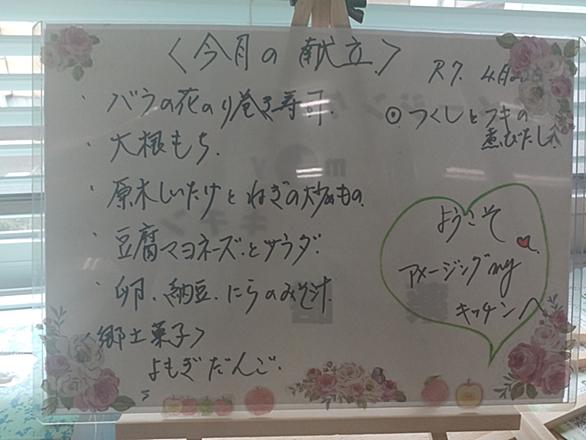 <今月の献立>
R7. 4月
・バラの花のり巻き寿司.
・大根もち.
・原木しいたけとねぎの炒めもの.
・豆腐マヨネーズとサラダ.
・卵.納豆.にらのみそ汁.
<郷土菓子>
よもぎだんご.
◎.つくしとフキの
煮びたし
ようこそ
アメージングmy
キッチンへ